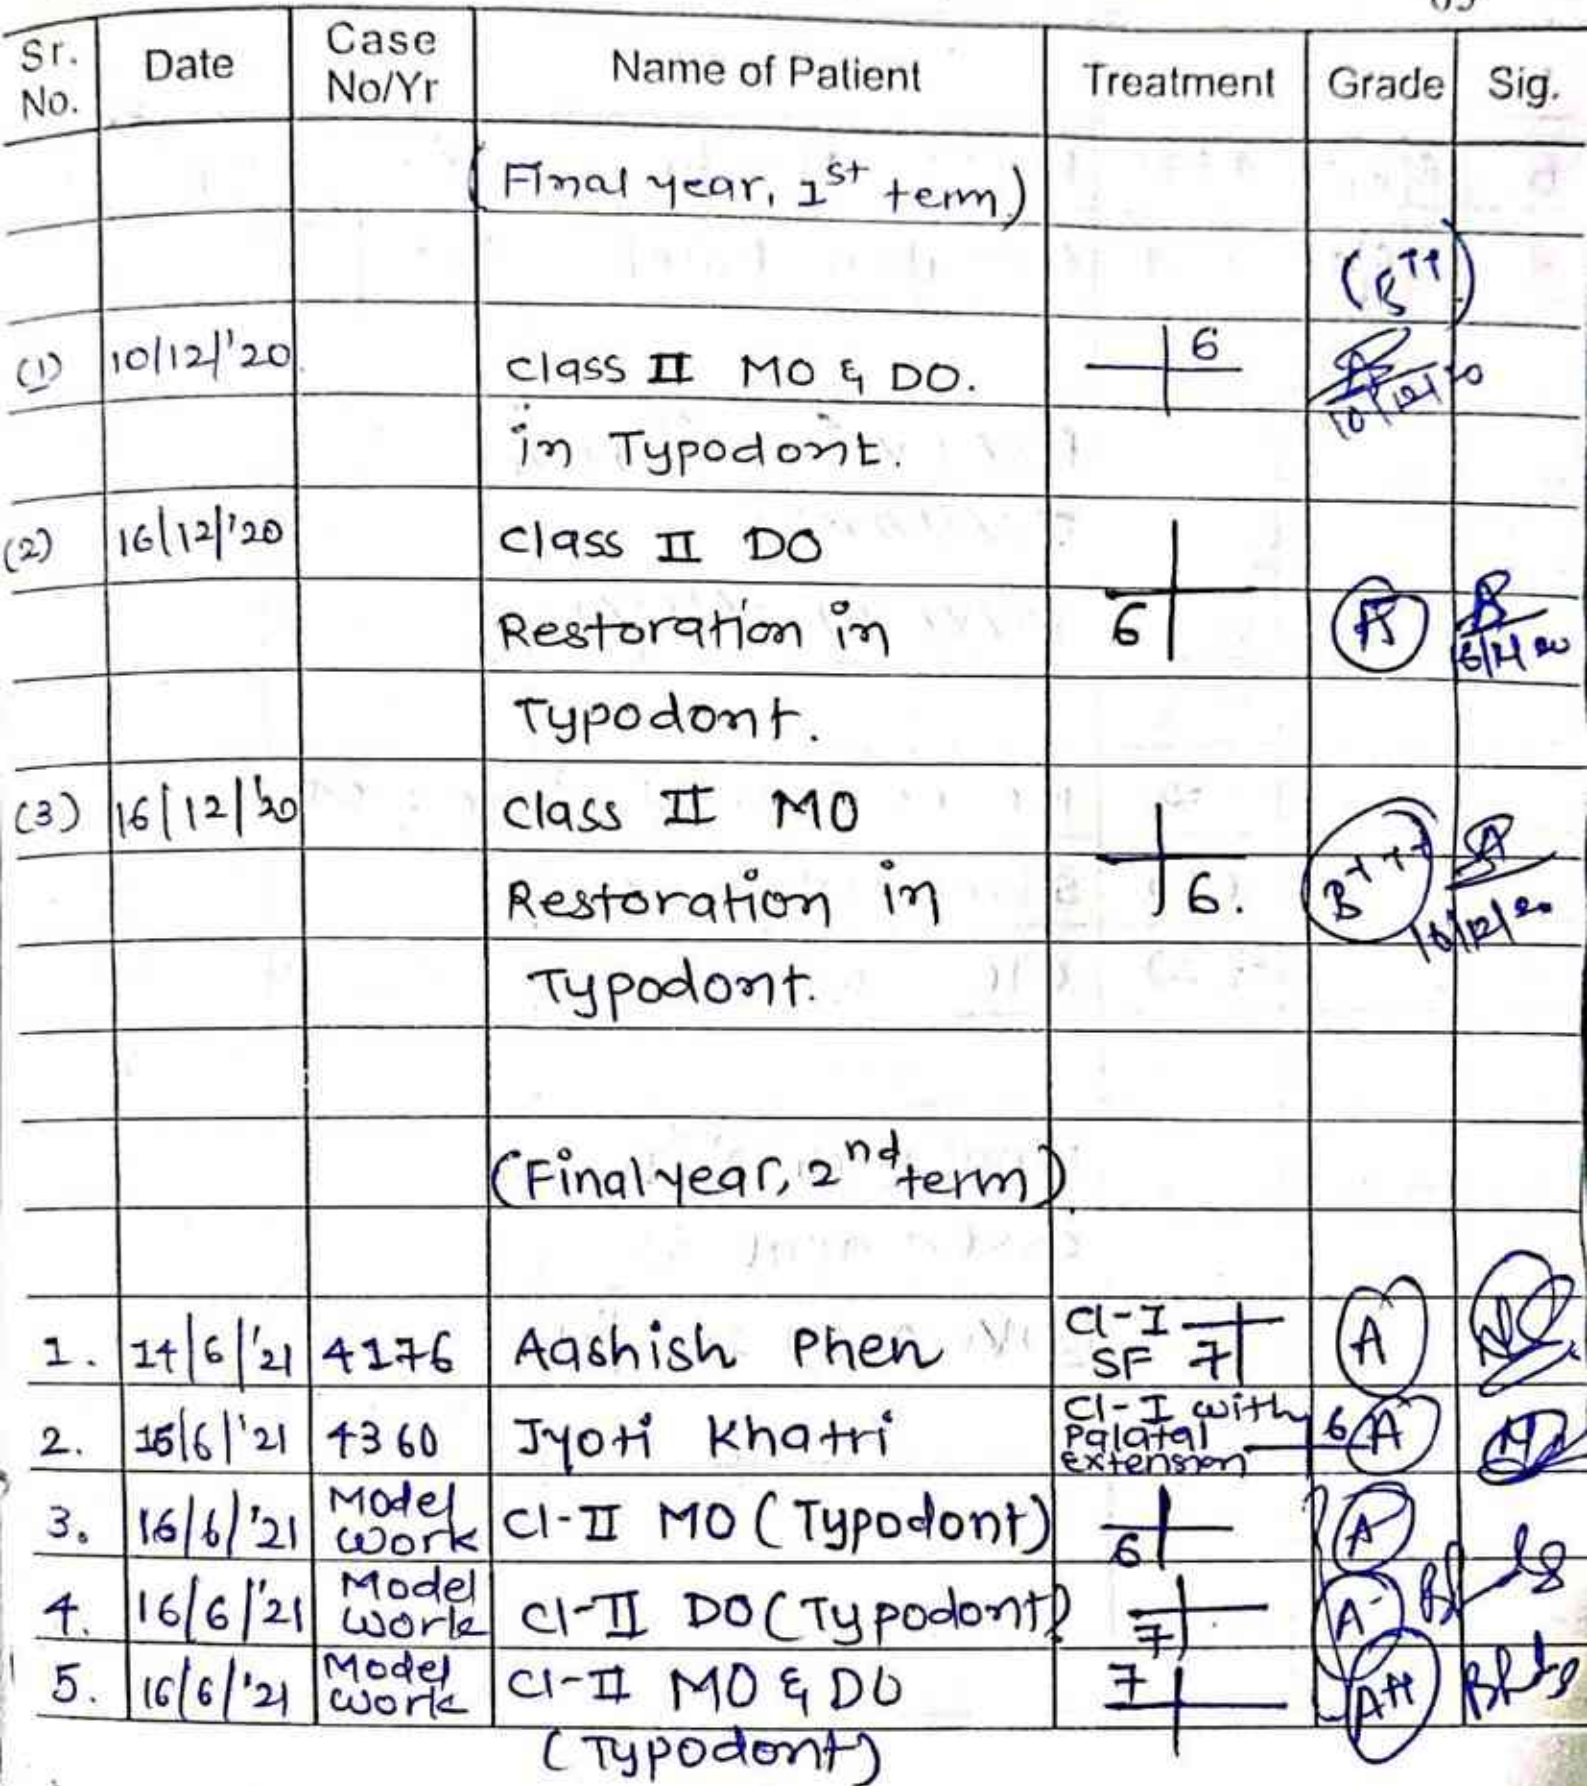 Sr. No. Date Case No/Yr Name of Patient Treatment Grade Sig.
(Final year, 1st term)
(B++)
(1) 10/12/'20 Class II MO & DO. 6
in Typodont. 10/12/20
(2) 16/12/'20 Class II DO
Restoration in 6 A
Typodont.
(3) 16/12/'20 Class II MO
Restoration in 6. B+++
Typodont. 16/12/20
(Final year, 2nd term)
1. 14/6/'21 4176 Aashish Phen Cl-I SF 7 A
2. 15/6/'21 4360 Jyoti Khatri Cl-I with Palatal extension 6 A
3. 16/6/'21 Model Work Cl-II MO (Typodont) 6 A
4. 16/6/'21 Model Work Cl-II DO (Typodont) 7 A-
5. 16/6/'21 Model Work Cl-II MO & DO 7 A++
(Typodont)